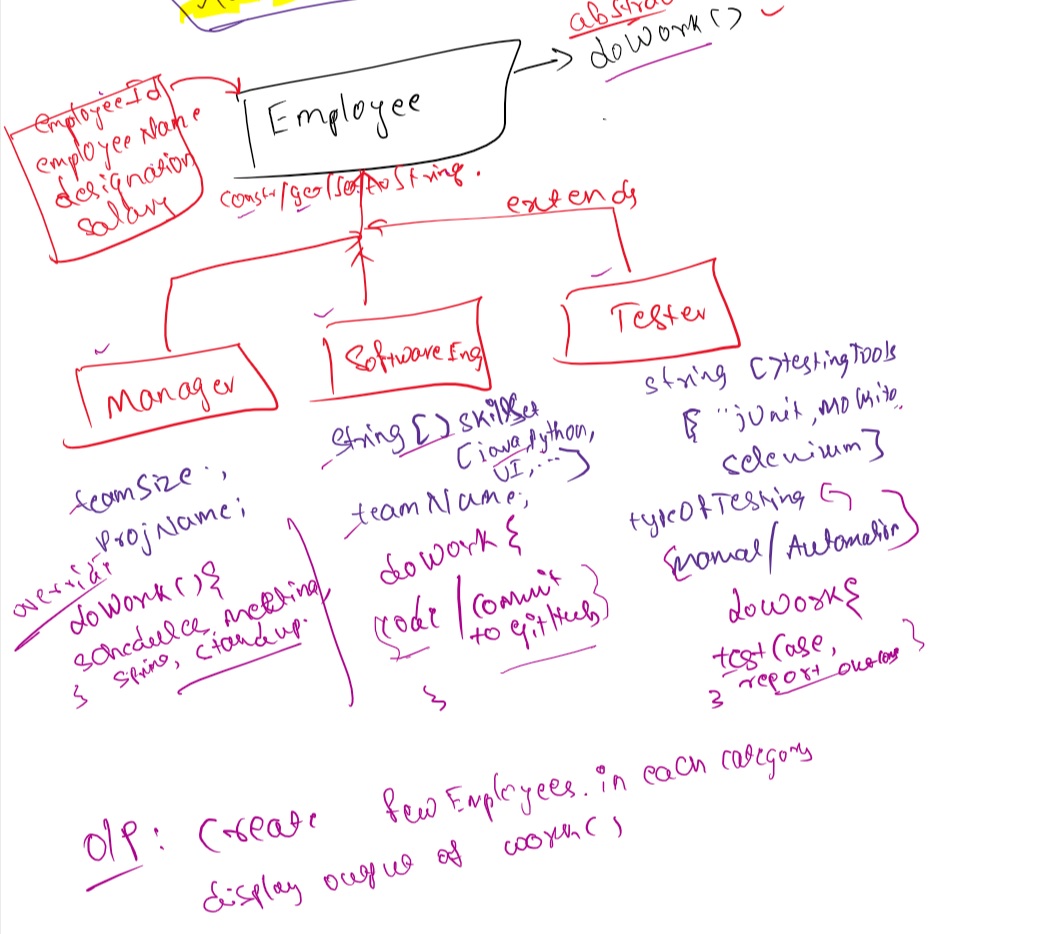 abstrac
doWork()
Employee
employeeId
employee Name
designation
salary
constr/ge/set/toString.
extends
Manager
Software Eng
Tester
teamSize;,
ProjName;
override
doWork(){
schedule meeting
standup.
}
String[] skillSet
[java, python,
UI, ...]
teamName;,
doWork {
code / commit
to gitHub}
}
string []testingTools
{ "jUnit, Mo kito,
selenium}
typeOfTesting
{manual/Automation}
doWork{
testCase,
report
}
O/P: Create few Employees. in each category
display output of work()